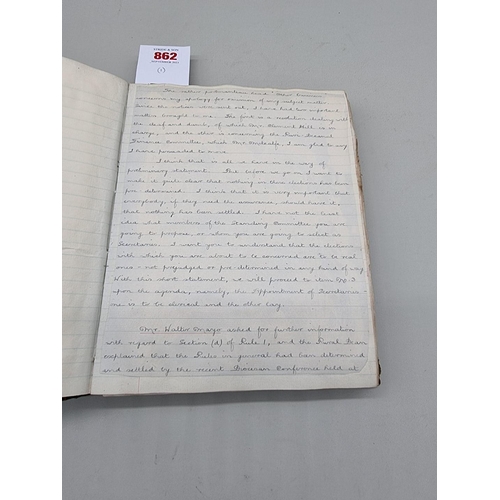 862
(1)
The matter
concerning my apology for omission of any subject matter.
Since the notices were sent out, I have had two important
matters brought to me. The first is a resolution dealing with
the deaf and dumb, of which this Hill is in
charge, and the other is concerning the
Finance Committee, which Mr. Metcalfe, I am glad to say
I have persuaded to move.
I think that is all we have in the way of
preliminary statement. But before we go on I want to
make it quite clear that nothing in these elections has been
pre-determined. I think that it is very important that
everybody, if they need the assurance, should have it,
that nothing has been settled. I have not the least
idea what members of the Standing Committee you are
going to propose, or whom you are going to select as
Secretaries. I want you to understand that the elections
with which you are about to be concerned are to be real
ones - not prejudged or pre-determined in any kind of way.
With this short statement, we will proceed to item No 2
upon the agenda, namely, the Appointment of Secretaries-
one is to be clerical and the other lay.
Mr. Walter Mayo asked for further information
with regard to Section (d) of Rule 1, and the Rural Dean
explained that the Rules in general had been determined
and settled by the recent Diocesan Conference held at